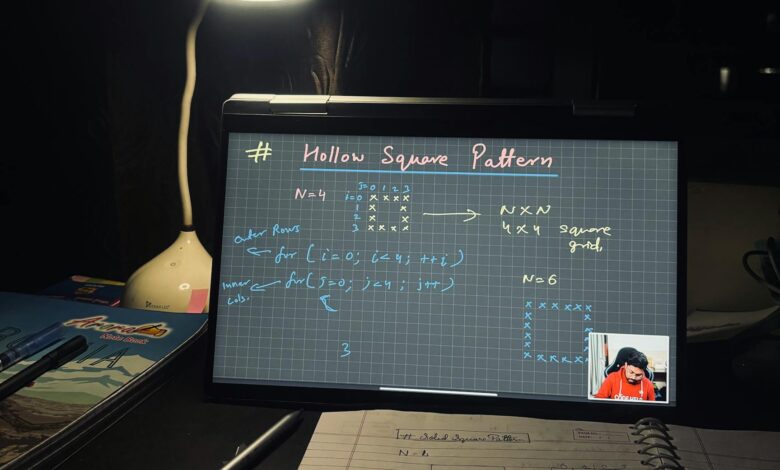 # Hollow Square Pattern
N=4
J=0 1 2 3
i=0 x x x x
1 x x
2 x x
3 x x x x
N x N
4 x 4 square
grid.
Outer Rows
for ( i=0; i<4; ++i )
Inner
cols.
for( J=0; j<4; j++)
3
N=6
x x x x x x
x x
x
x
x
x x x x x x
Arora
Note Book
# Solid Square Pattern
N=4